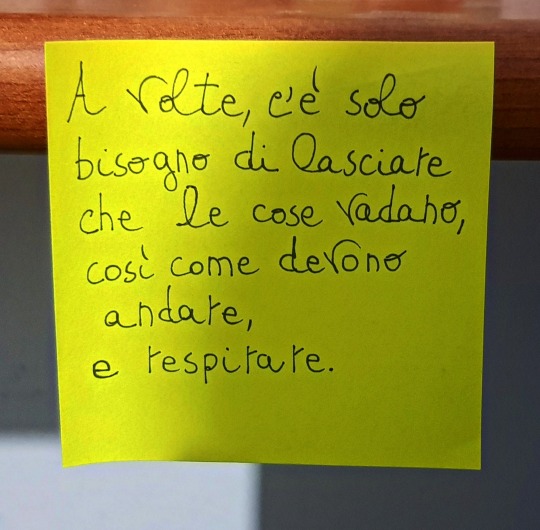 A volte, c'è solo
bisogno di lasciare
che le cose vadano,
così come devono
andare,
e respirare.